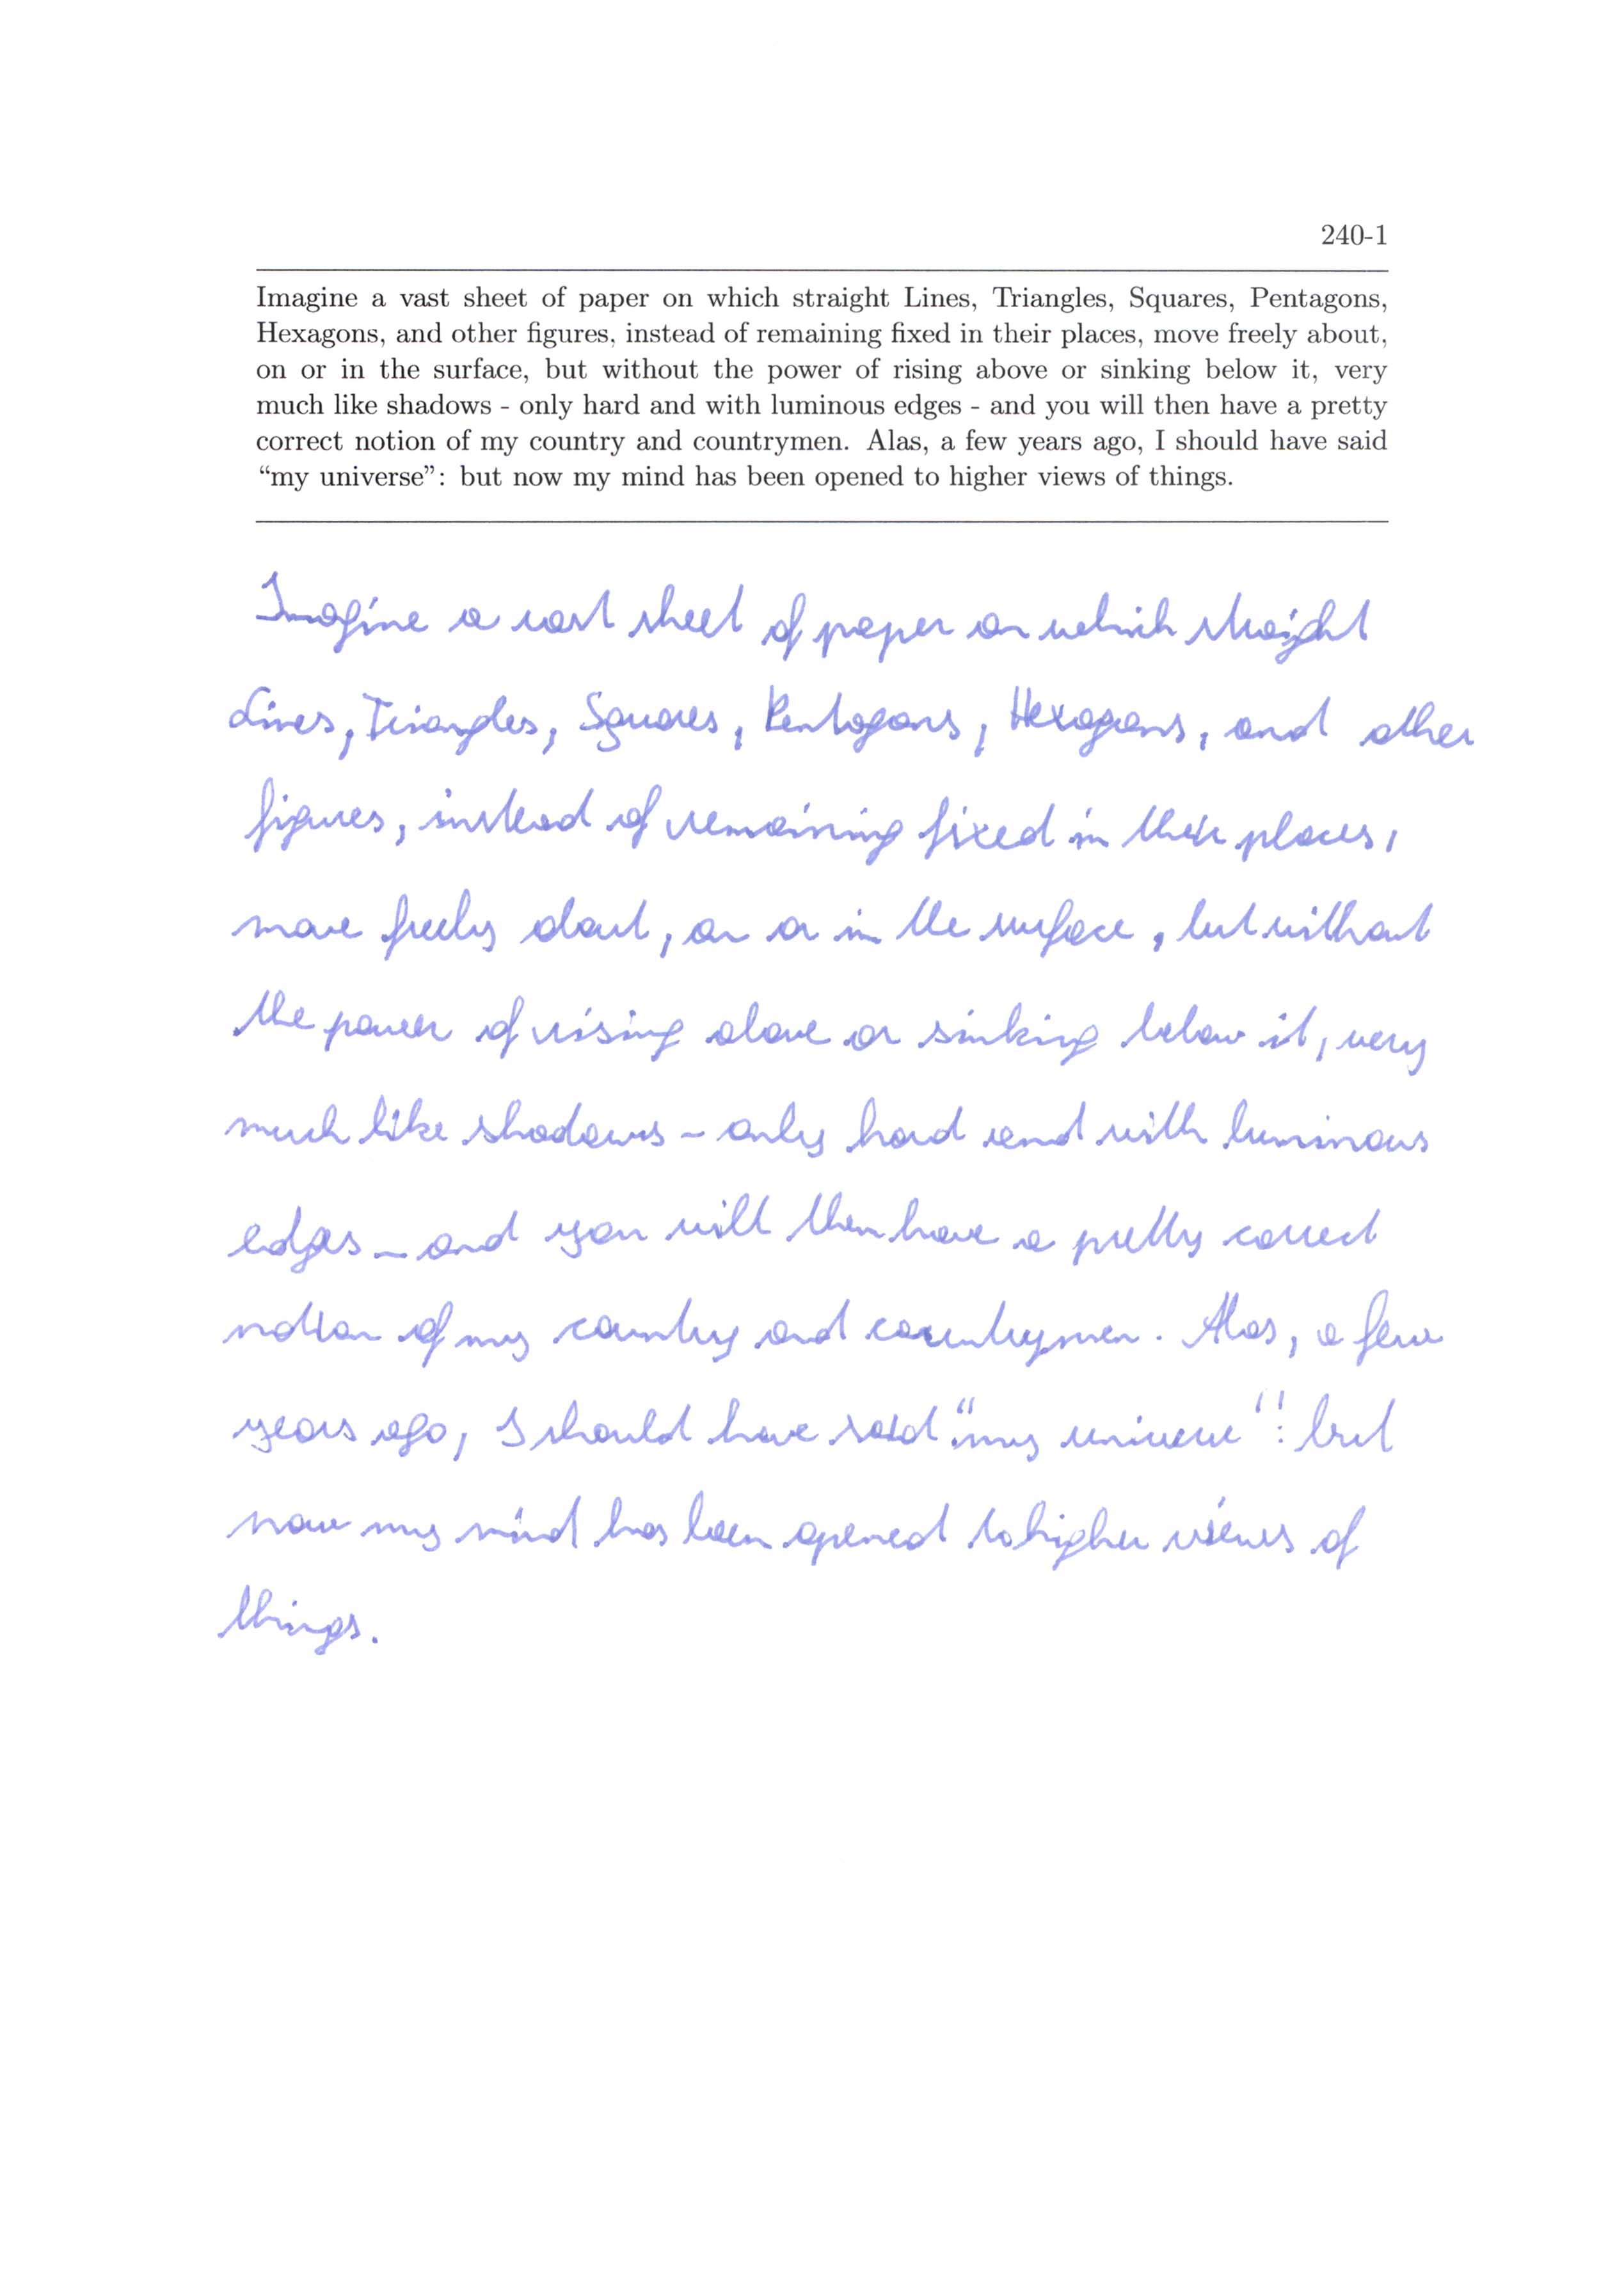 240-1
Imagine a vast sheet of paper on which straight Lines, Triangles, Squares, Pentagons,
Hexagons, and other figures, instead of remaining fixed in their places, move freely about,
on or in the surface, but without the power of rising above or sinking below it, very
much like shadows - only hard and with luminous edges - and you will then have a pretty
correct notion of my country and countrymen. Alas, a few years ago, I should have said
“my universe”: but now my mind has been opened to higher views of things.
Imagine a vast sheet of paper on which straight
Lines, Triangles, Squares, Pentagons, Hexagons, and other
figures, instead of remaining fixed in their places,
move freely about, on or in the surface, but without
the power of rising above or sinking below it, very
much like shadows - only hard and with luminous
edges - and you will then have a pretty correct
notion of my country and countrymen. Alas, a few
years ago, I should have said "my universe": but
now my mind has been opened to higher views of
things.